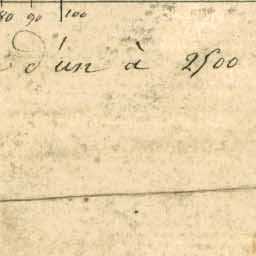 80 90 100
d'un à 2500